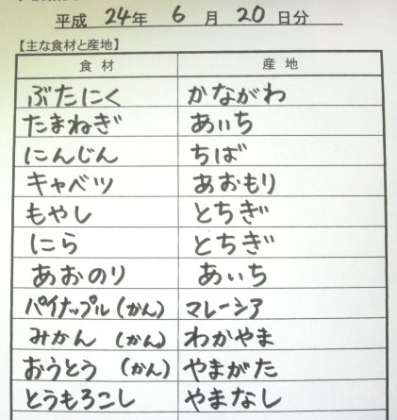 平成 24年 6月 20日分
【主な食材と産地】
食材 産地
ぶたにく かながわ
たまねぎ あいち
にんじん ちば
キャベツ あおもり
もやし とちぎ
にら とちぎ
あおのり あいち
パイナップル(かん) マレーシア
みかん (かん) わかやま
おうとう (かん) やまがた
とうもろこし やまなし